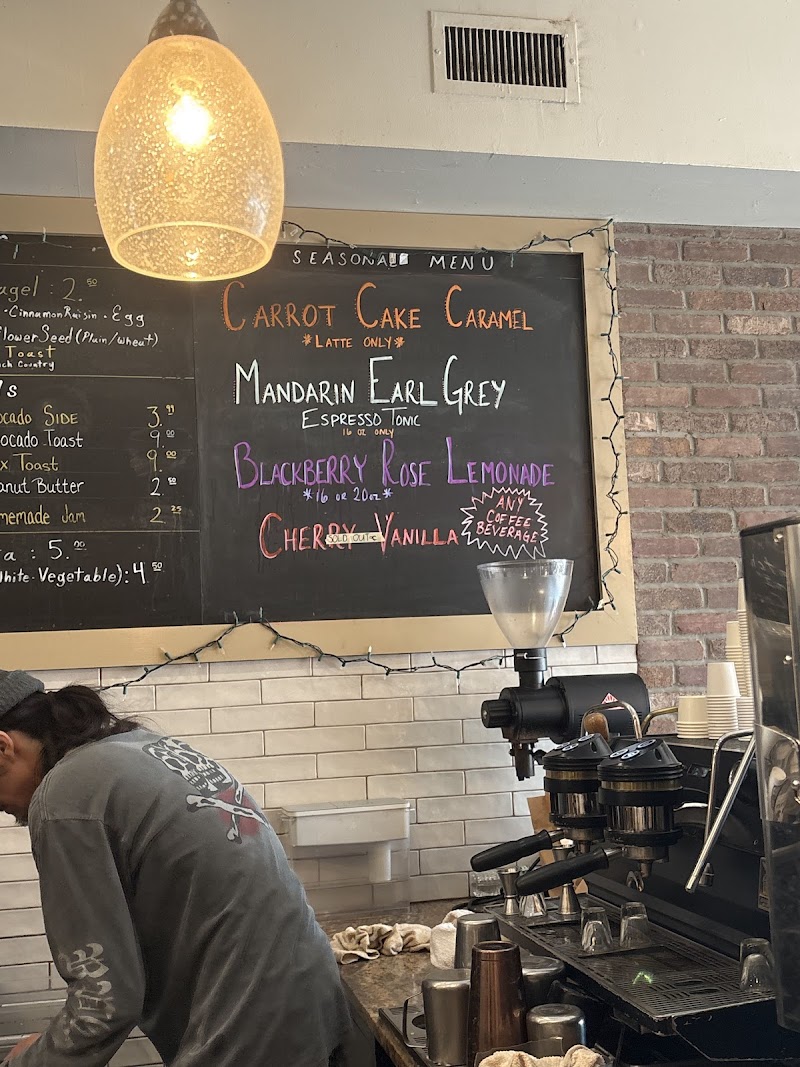 agel: 2.50
-CinnamonRaisin-Egg
flowerSeed (Plain/Wheat)
Toast
ch Country
ocado Side 3.
ocado Toast 9.00
x Toast 9.00
anut Butter 2.50
memade Jam 2.25
a: 5.00
White-Vegetable): 4.50
SEASONAL MENU
CARROT CAKE CARAMEL
*LATTE ONLY*
MANDARIN EARL GREY
ESPRESSO TONIC
16 OZ ONLY
BLACKBERRY ROSE LEMONADE
*16 OR 20OZ*
CHERRY VANILLA
SOLD OUT
ANY
COFFEE
BEVERAGE